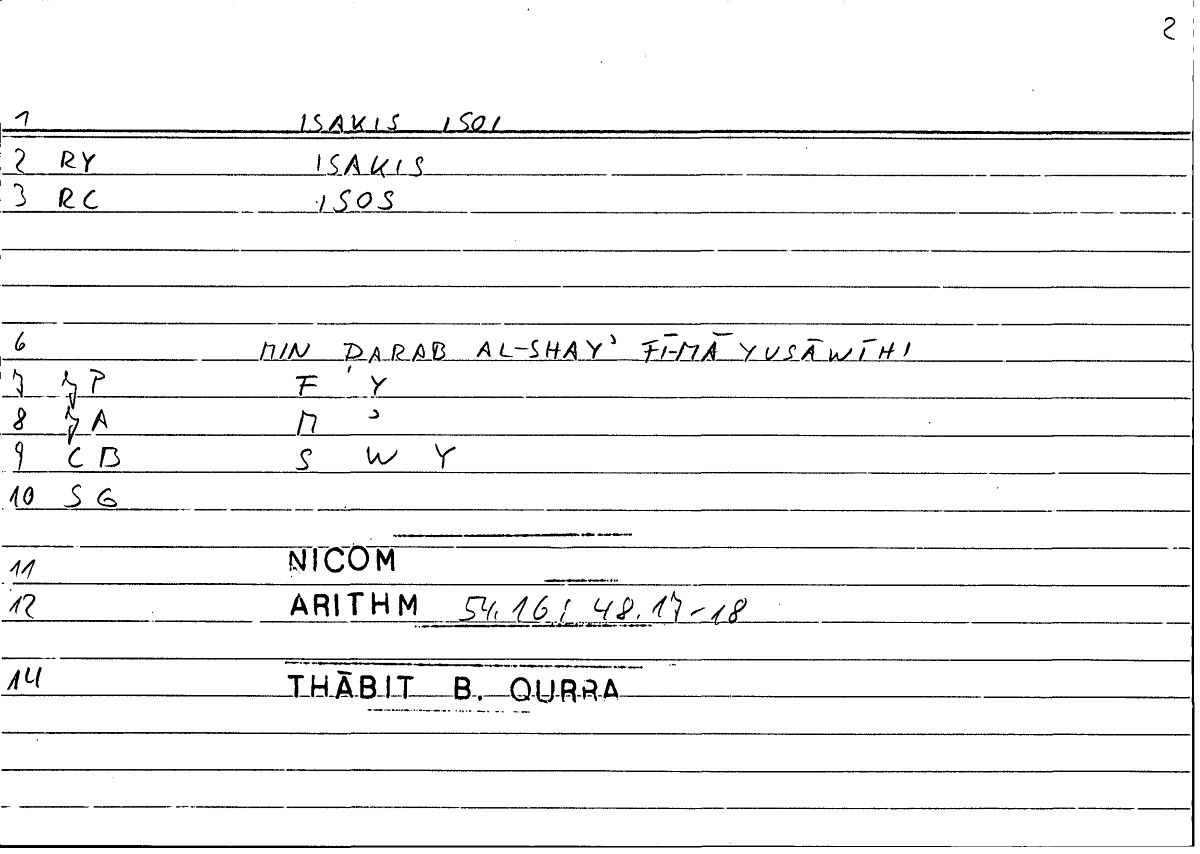 2
1 ISAKIS ISOI
2 RY ISAKIS
3 RC ISOS
6 MIN ḌARAB AL-SHAYʾ FĪ-MĀ YUSĀWĪHI
7 P F Y
8 A M ʾ
9 CB S W Y
10 SG
11 NICOM
12 ARITHM 54.16; 48.17-18
14 THĀBIT B. QURRA